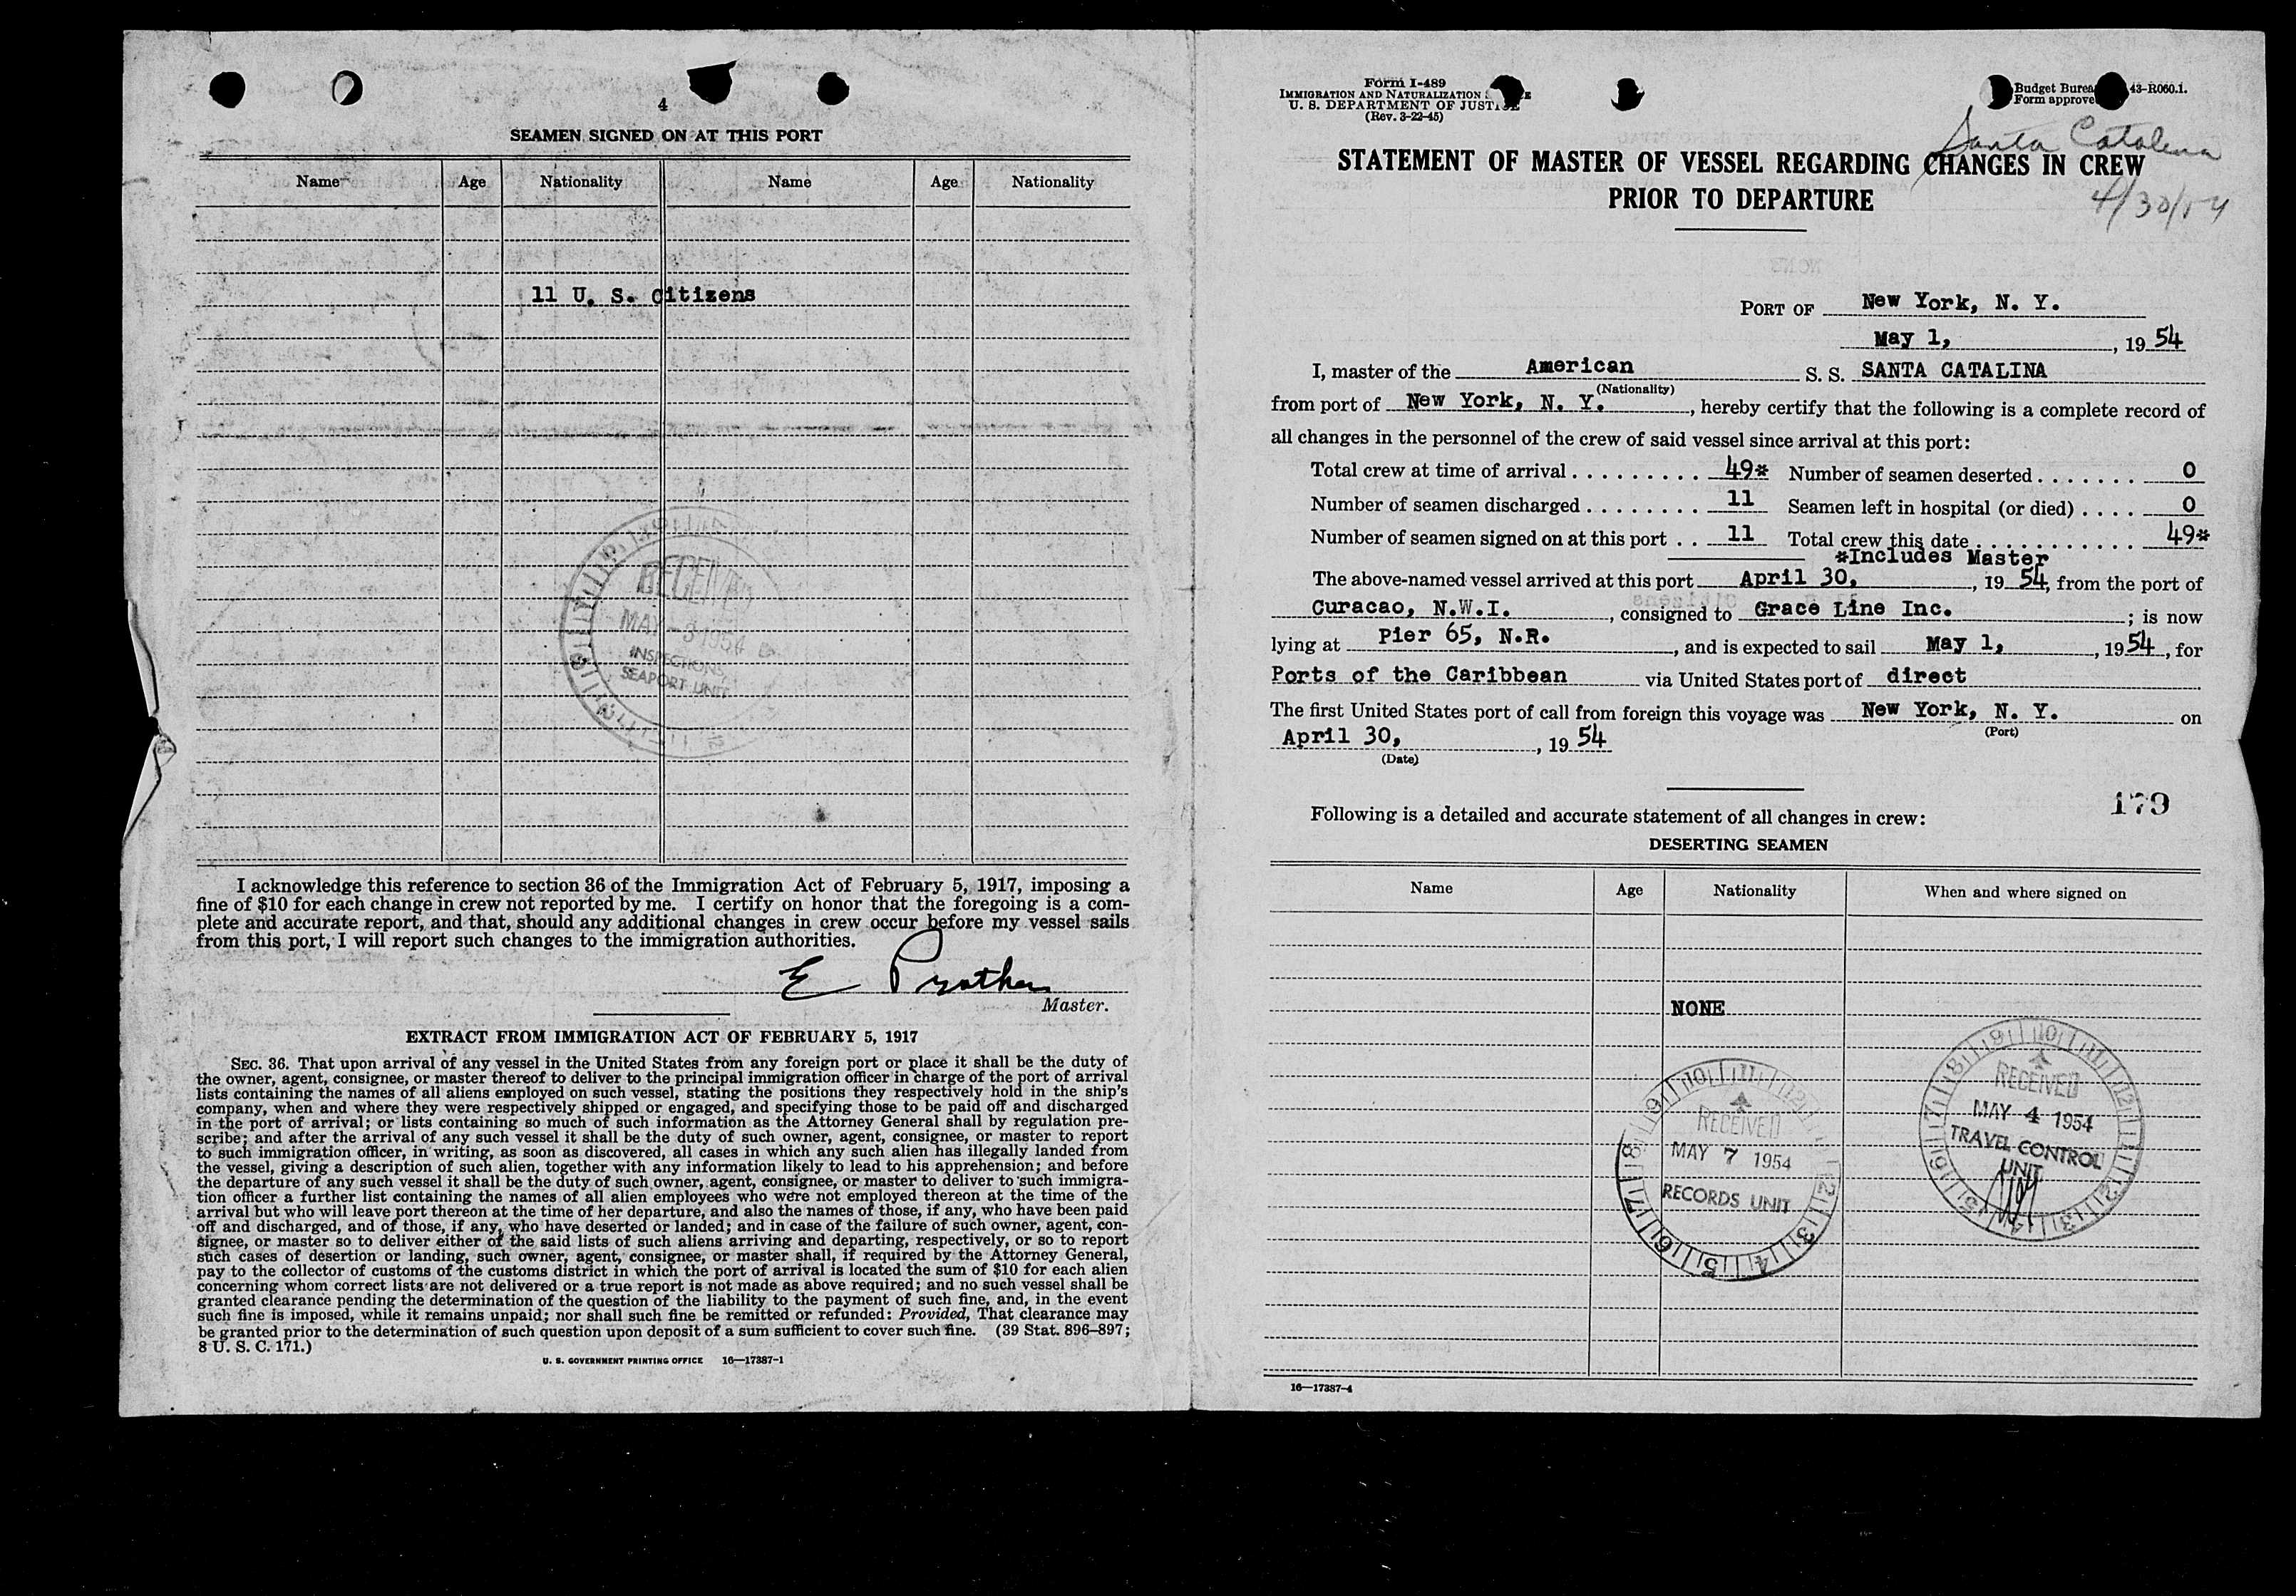 4
SEAMEN SIGNED ON AT THIS PORT
Name Age Nationality Name Age Nationality
11 U. S. Citizens
RECEIVED
MAY 1954
INSPECTIONS,
SEAPORT UNIT
I acknowledge this reference to section 36 of the Immigration Act of February 5, 1917, imposing a
fine of $10 for each change in crew not reported by me. I certify on honor that the foregoing is a com-
plete and accurate report, and that, should any additional changes in crew occur before my vessel sails
from this port, I will report such changes to the immigration authorities.
E Prather
Master.
EXTRACT FROM IMMIGRATION ACT OF FEBRUARY 5, 1917
SEC. 36. That upon arrival of any vessel in the United States from any foreign port or place it shall be the duty of
the owner, agent, consignee, or master thereof to deliver to the principal immigration officer in charge of the port of arrival
lists containing the names of all aliens employed on such vessel, stating the positions they respectively hold in the ship's
company, when and where they were respectively shipped or engaged, and specifying those to be paid off and discharged
in the port of arrival; or lists containing so much of such information as the Attorney General shall by regulation pre-
scribe; and after the arrival of any such vessel it shall be the duty of such owner, agent, consignee, or master to report
to such immigration officer, in writing, as soon as discovered, all cases in which any such alien has illegally landed from
the vessel, giving a description of such alien, together with any information likely to lead to his apprehension; and before
the departure of any such vessel it shall be the duty of such owner, agent, consignee, or master to deliver to such immigra-
tion officer a further list containing the names of all alien employees who were not employed thereon at the time of the
arrival but who will leave port thereon at the time of her departure, and also the names of those, if any, who have been paid
off and discharged, and of those, if any, who have deserted or landed; and in case of the failure of such owner, agent, con-
signee, or master so to deliver either of the said lists of such aliens arriving and departing, respectively, or so to report
such cases of desertion or landing, such owner, agent, consignee, or master shall, if required by the Attorney General,
pay to the collector of customs of the customs district in which the port of arrival is located the sum of $10 for each alien
concerning whom correct lists are not delivered or a true report is not made as above required; and no such vessel shall be
granted clearance pending the determination of the question of the liability to the payment of such fine, and, in the event
such fine is imposed, while it remains unpaid; nor shall such fine be remitted or refunded: Provided, That clearance may
be granted prior to the determination of such question upon deposit of a sum sufficient to cover such fine. (39 Stat. 896–897;
8 U. S. C. 171.)
U. S. GOVERNMENT PRINTING OFFICE 16—17387-1
Form I-489
IMMIGRATION AND NATURALIZATION
U. S. DEPARTMENT OF JUSTICE
(Rev. 3-22-45)
Budget Bureau 43-R060.1.
Form approved
Santa Catalina
4/30/54
STATEMENT OF MASTER OF VESSEL REGARDING CHANGES IN CREW
PRIOR TO DEPARTURE
PORT OF New York, N. Y.
May 1, , 19 54
I, master of the American S. S. SANTA CATALINA
(Nationality)
from port of New York, N. Y. , hereby certify that the following is a complete record of
all changes in the personnel of the crew of said vessel since arrival at this port:
Total crew at time of arrival . . . . . . . . . 49* Number of seamen deserted . . . . . . . 0
Number of seamen discharged . . . . . . . . 11 Seamen left in hospital (or died) . . . . 0
Number of seamen signed on at this port . . 11 Total crew this date . . . . . . . . . . . . 49*
*Includes Master
The above-named vessel arrived at this port April 30, , 19 54, from the port of
Curacao, N.W.I. , consigned to Grace Line Inc. ; is now
lying at Pier 65, N.R. , and is expected to sail May 1, , 19 54 , for
Ports of the Caribbean via United States port of direct
The first United States port of call from foreign this voyage was New York, N. Y. on
(Port)
April 30, , 19 54
(Date)
179
Following is a detailed and accurate statement of all changes in crew:
DESERTING SEAMEN
Name Age Nationality When and where signed on
NONE
RECEIVED
MAY 4 1954
TRAVEL CONTROL
UNIT
RECEIVED
MAY 7 1954
RECORDS UNIT
16—17387-4